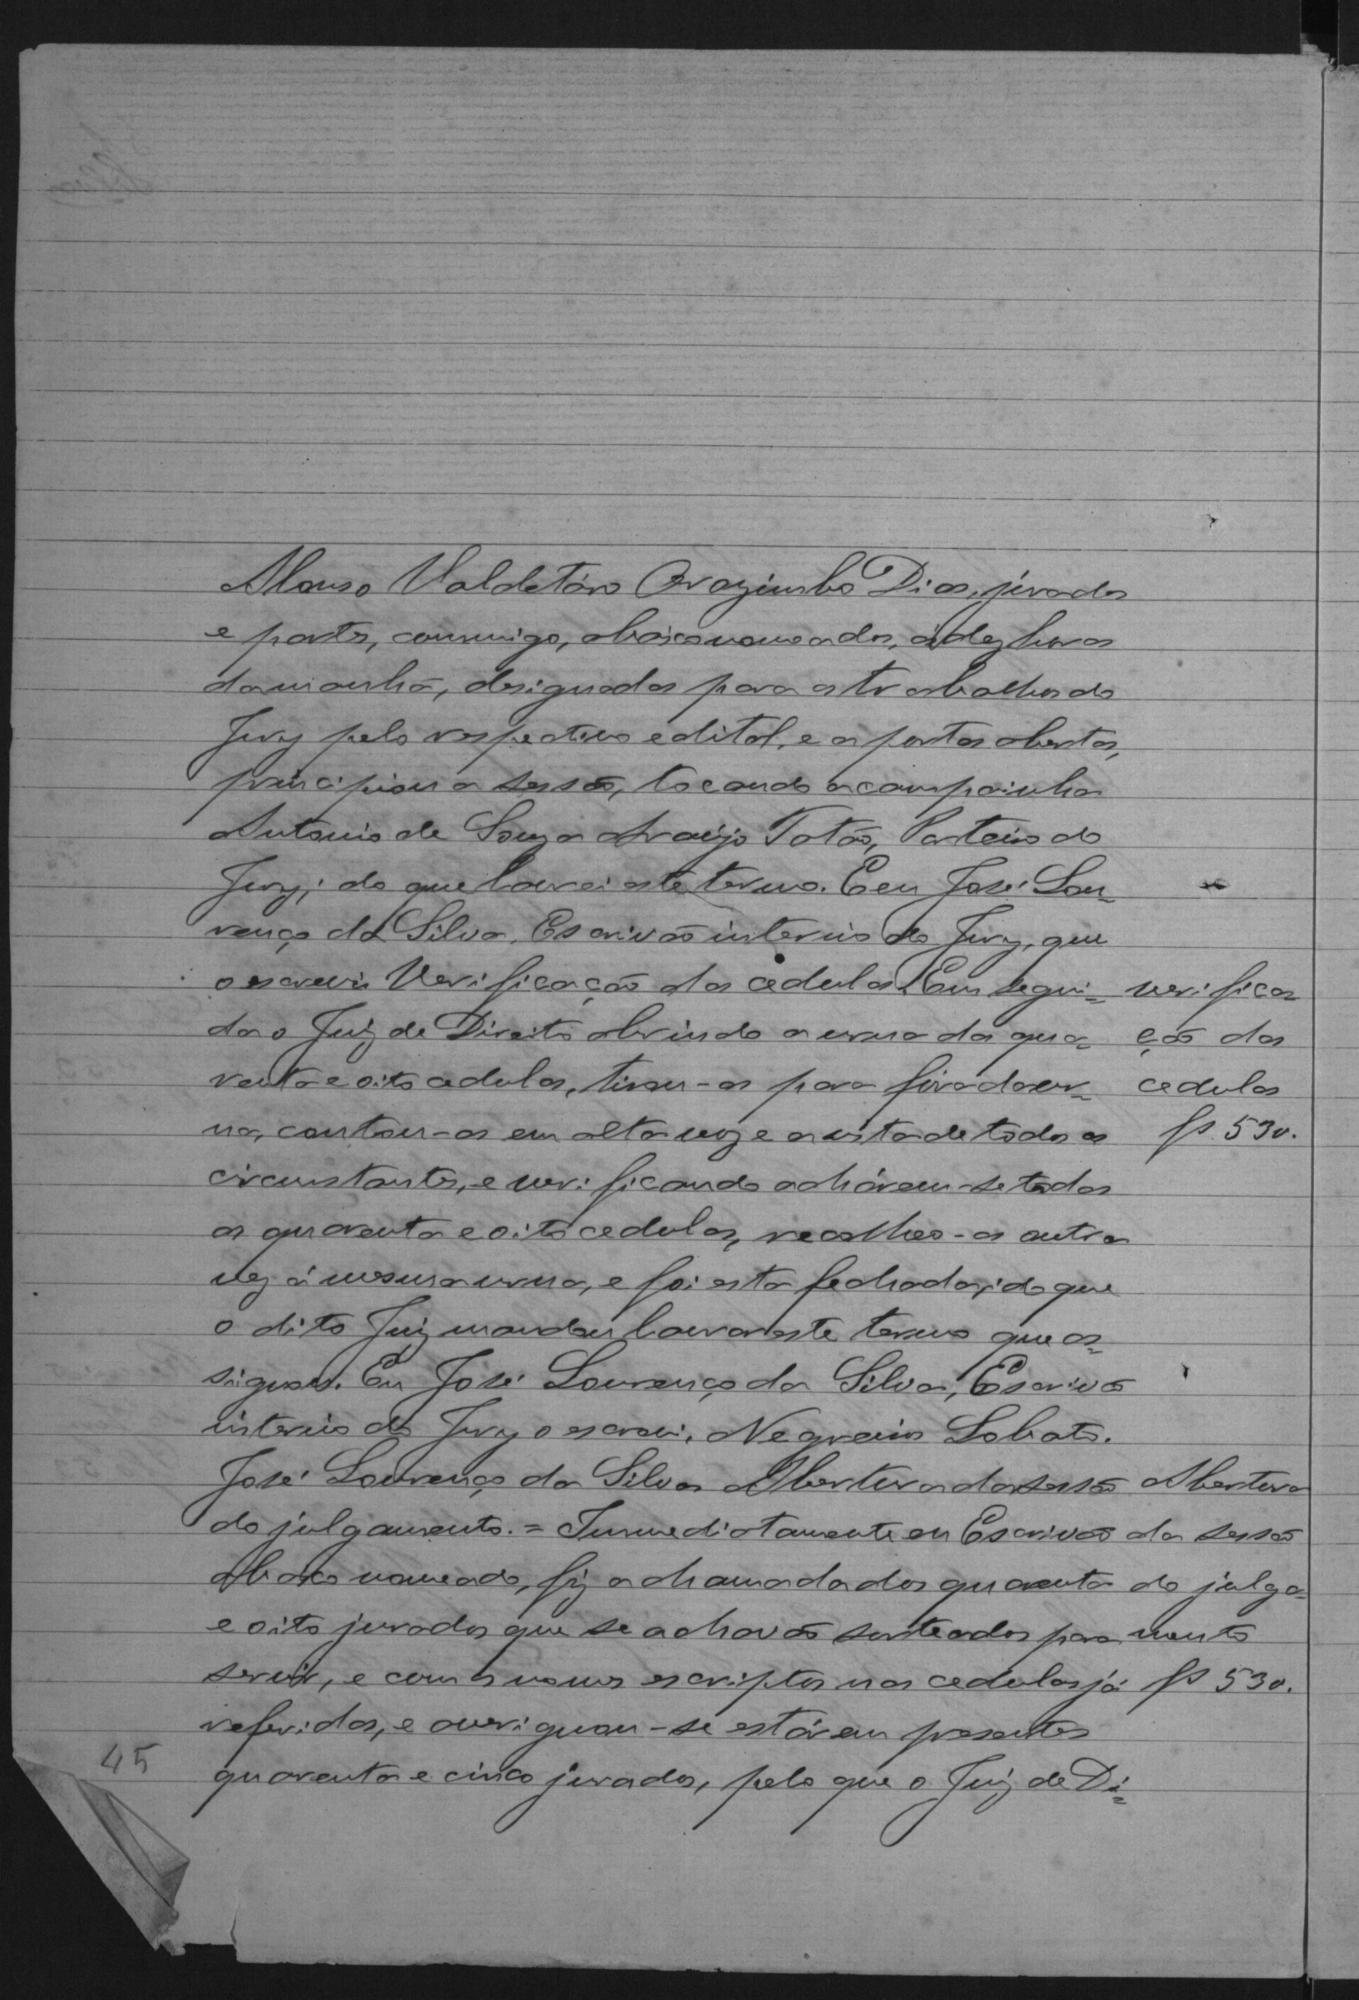 Alonso Valdetáro Orazimbo Dias, jurados
e partes, commigo, abaixo nomeados, ás dez horas
da manhã, designadas para os trabalhos do
Jury pelo respectivo edital, e a portas abertas,
principiou a sessão, tocando a campainha
Antonio de Souza Araujo Tatão, Porteiro do
Jury; do que lavrei este termo. E eu José Lou=
renço da Silva, Escrivão interino do Jury, que
o escrevi Verificação das cedulas. Em segui=
da o Juiz de Direito abrindo a urna das qua=
renta e oito cedulas, tirou-as para fóra da ur=
na, contou-as em alta voz e a vista de todos os
circunstantes, e verificando achárem-se todas
as quarenta e oito cedulas, recolheo-as outra
vez á mesma urna, e foi esta fechada; do que
o dito Juiz mandou lavrar este termo que as=
signou. Eu José Lourenço da Silva, Escrivão
interino do Jury o escrevi. Negreiros Lobato.
José Lourenço da Silva Abertura da sessão
do julgamento. = Immediatamente eu Escrivão
abaixo nomeado, fiz a chamada dos quarenta
e oito jurados que se achavão sorteados para
servir, e com os nomes escriptos nas cedulas já
referidas, e averiguou-se estárem presentes
quarenta e cinco jurados, pelo que o Juiz de Di=
verifica
ção das
cedulas
fs 530.
Abertura
da sessão
do julga=
mento
fs 530.
45